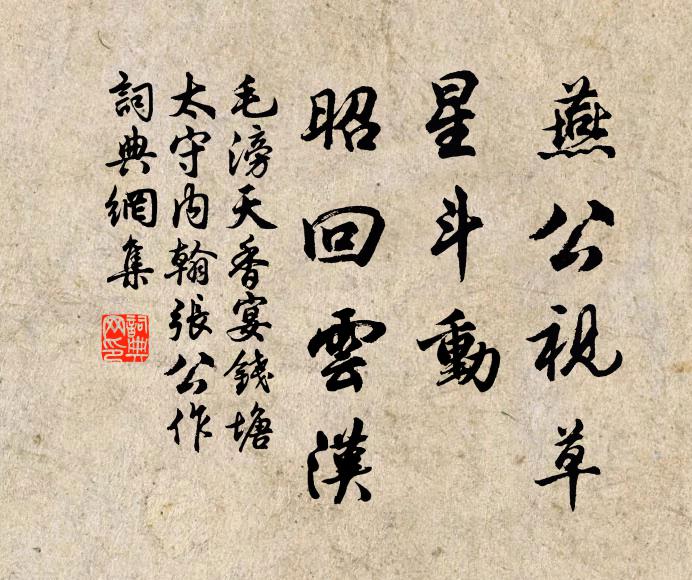 燕公視草
星斗動
昭回雲漢
毛滂天香宴錢塘
太守内翰張公作
詞典網集
詞典网印